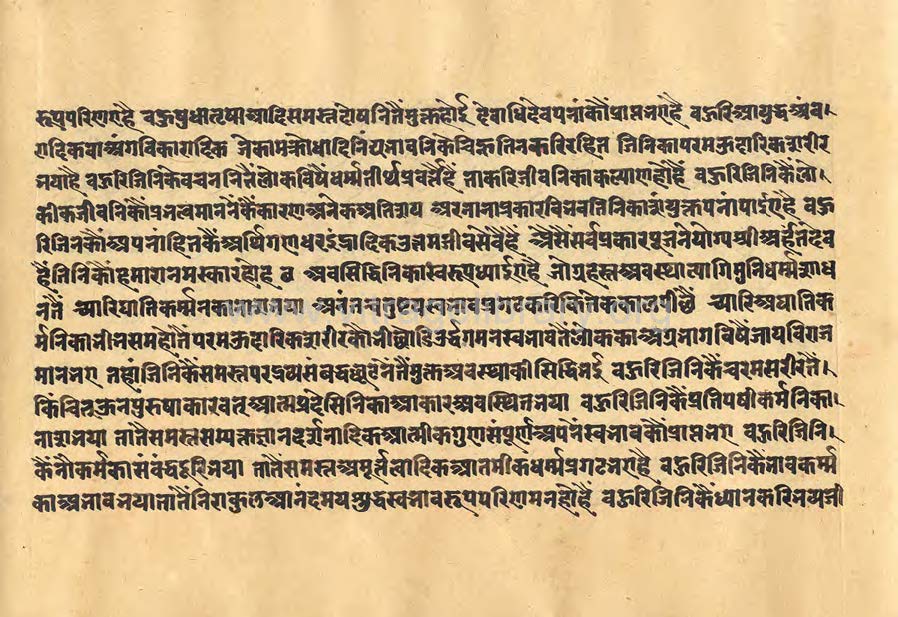 रूप परिणए है बहुरि क्षुधा तृषा आदि समस्त दोषनितैं मुक्त होई देवाधिदेवपनांकौं प्राप्त भए है बहुरि आयुध अंब।
रादिक वा अंगविकारादिक जे काम क्रोधादि निंद्यभावनिके चिह्न तिनकरि रहित जिनिका परम ऊदारिक शरीर
भया है बहुरि जिनिके वचननितैं लोकविषैं धर्म्मतीर्थ प्रवर्त्तै है ताकरि जीवनिका कल्याण हो है बहुरि जिनिकै लौ।
कीक जीवनिकैं प्रभुत्व माननेंकैं कारण अनेक अतिशय अर नाना प्रकार विभव तिनिका संयुक्तपना पाईए है बहु
रि जिनकौं अपनां हितकैं अर्थि गणधर इंद्रादिक उत्तम जीव सेवै हैं अैसैं सर्व प्रकार पूजने योग्य श्री अर्हंतदेव
हैं तिनिकौं हमारा नमस्कार होहु व अब सिद्धनिका स्वरूप ध्याईए है जो गृहस्त अवस्था त्यागि मुनिधर्म्म साध
नतैं च्यारि घातिकर्म्मनका नाश भया अनंतचतुष्टय स्वभाव प्रगट करि केतेक काल पीछैं च्यारि अघातिक
र्मनिका भी भस्म होतैं परम ऊदारिक शरीरकौं भी छोडि ऊर्द्धगमन स्वभावतैं लोकका अग्रभागविषैं जाय विराज
मान भए तहां जिनिकैं समस्त परद्रव्यसंबद्ध छूटनेंतैं मुक्त अवस्थाकी सिद्धि भई बहुरि जिनिकैं चरमसरीरतैं।
किंचित् ऊन पुरुषाकारवत् आत्मप्रदेसिनिका आकार अवस्थित भया बहुरि जिनिकैं प्रतिपक्षी कर्मनिका।
नाश भया तातैं समस्त सम्यक्त ज्ञान दर्शनादिक आत्मीक गुण संपूर्ण अपनें स्वभावकौं प्राप्त भए बहुरि जिनि।
कैं नौकर्मका संबंध दूरि भया तातैं समस्त अमूर्त्तत्वादिक आतमीक धर्म्म प्रगट भए है बहुरि जिनिकैं भावकर्म्म
का अभाव भया तातैं निराकुल आनंदमय शुद्ध स्वभावरूप परिणमन हो है बहुरि जिनिकैं ध्यानकरि भव्य जी